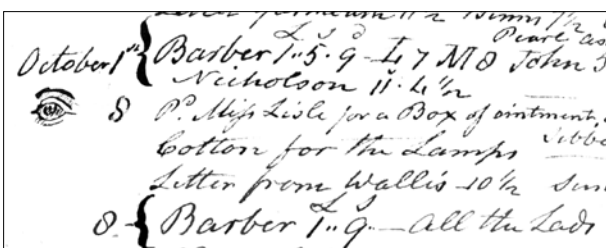 Letter 11½ 7½
Pearl as
L s d
October 1st { Barber 1..5.9 - L 7 M 8 John
Nicholson 11.4½
8 Pd. Miss Lisle for a Box of ointment,
Cotton for the Lamps
Letter from Wallis 10½
L s
8 { Barber 1..9 - All the Lads